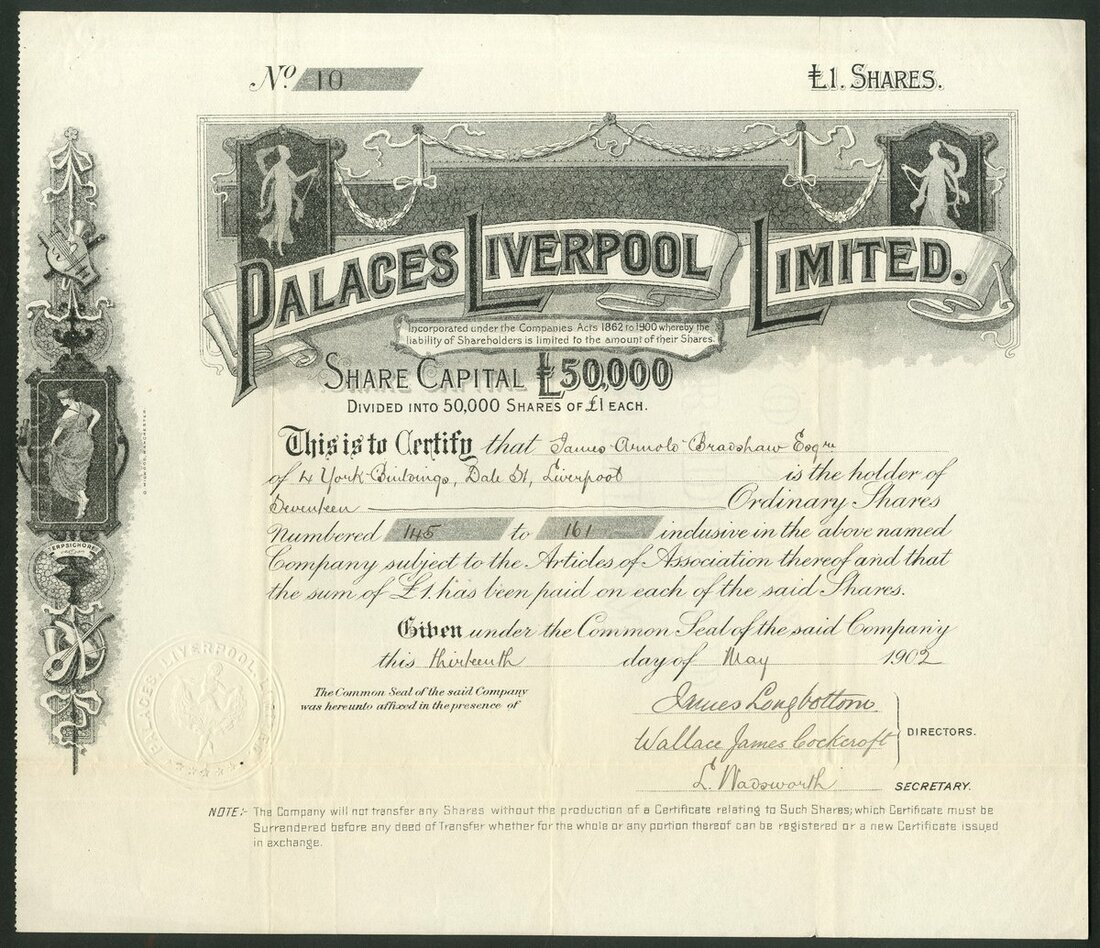 No. 10
£1. SHARES.
PALACES LIVERPOOL LIMITED.
Incorporated under the Companies Acts 1862 to 1900 whereby the
liability of Shareholders is limited to the amount of their Shares.
SHARE CAPITAL £50,000
DIVIDED INTO 50,000 SHARES OF £1 EACH.
This is to Certify that James Arnold Bradshaw Esqre
of 4 York Buildings, Dale St, Liverpool is the holder of
Seventeen Ordinary Shares
Numbered 145 to 161 inclusive in the above named
Company subject to the Articles of Association thereof and that
the sum of £1. has been paid on each of the said Shares.
Given under the Common Seal of the said Company
this thirteenth day of May 1902
The Common Seal of the said Company
was hereunto affixed in the presence of
James Longbottom
Wallace James Cockcroft
DIRECTORS.
L. Wadsworth SECRETARY.
NOTE:- The Company will not transfer any Shares without the production of a Certificate relating to Such Shares; which Certificate must be
Surrendered before any deed of Transfer whether for the whole or any portion thereof can be registered or a new Certificate issued
in exchange.
TERPSICHORE
PALACES, LIVERPOOL, LIMITED